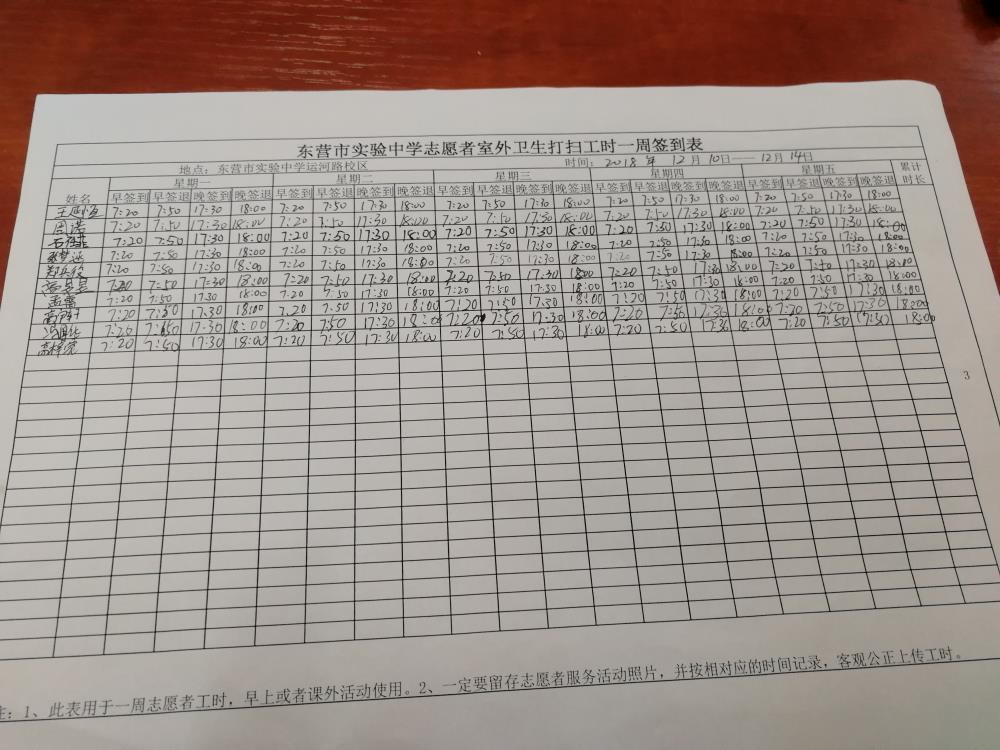 东营市实验中学志愿者室外卫生打扫工时一周签到表
地点：东营市实验中学运河路校区 时间：2018 年 12 月 10日——12月 14日
姓名 星期一 星期二 星期三 星期四 星期五 累计时长
早签到 早签退 晚签到 晚签退 早签到 早签退 晚签到 晚签退 早签到 早签退 晚签到 晚签退 早签到 早签退 晚签到 晚签退 早签到 早签退 晚签到 晚签退
7:20 7:50 17:30 18:00 7:20 7:50 17:30 18:00 7:20 7:50 17:30 18:00 7:20 7:50 17:30 18:00 7:20 7:50 17:30 18:00
周浩 7:20 7:50 17:30 18:00 7:20 7:50 17:30 18:00 7:20 7:50 17:30 18:00 7:20 7:50 17:30 18:00 7:20 7:50 17:30 18:00
7:20 7:50 17:30 18:00 7:20 7:50 17:30 18:00 7:20 7:50 17:30 18:00 7:20 7:50 17:30 18:00 7:20 7:50 17:30 18:00
7:20 7:50 17:30 18:00 7:20 7:50 17:30 18:00 7:20 7:50 17:30 18:00 7:20 7:50 17:30 18:00 7:20 7:50 17:30 18:00
7:20 7:50 17:30 18:00 7:20 7:50 17:30 18:00 7:20 7:50 17:30 18:00 7:20 7:50 17:30 18:00 7:20 7:50 17:30 18:00
7:20 7:50 17:30 18:00 7:20 7:50 17:30 18:00 7:20 7:50 17:30 18:00 7:20 7:50 17:30 18:00 7:20 7:50 17:30 18:00
7:20 7:50 17:30 18:00 7:20 7:50 17:30 18:00 7:20 7:50 17:30 18:00 7:20 7:50 17:30 18:00 7:20 7:50 17:30 18:00
7:20 7:50 17:30 18:00 7:20 7:50 17:30 18:00 7:20 7:50 17:30 18:00 7:20 7:50 17:30 18:00 7:20 7:50 17:30 18:00
7:20 7:50 17:30 18:00 7:20 7:50 17:30 18:00 7:20 7:50 17:30 18:00 7:20 7:50 17:30 18:00 7:20 7:50 17:30 18:00
7:20 7:50 17:30 18:00 7:20 7:50 17:30 18:00 7:20 7:50 17:30 18:00 7:20 7:50 17:30 18:00 7:20 7:50 17:30 18:00
3
注：1、此表用于一周志愿者工时，早上或者课外活动使用。2、一定要留存志愿者服务活动照片，并按相对应的时间记录，客观公正上传工时。